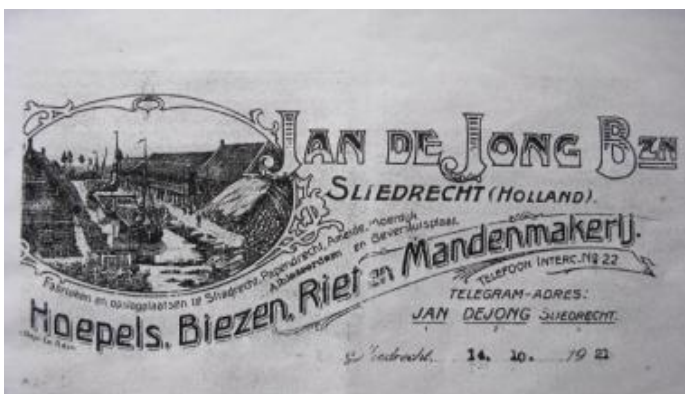 JAN DE JONG BZN
SLIEDRECHT (HOLLAND).
Fabrieken en opslagplaatsen te Sliedrecht, Papendrecht, Ameide, Moerdijk
Alblasserdam en Geversluisplaat.
Hoepels, Biezen, Riet en Mandenmakerij.
TELEFOON INTERC. No 22
TELEGRAM-ADRES:
JAN DEJONG SLIEDRECHT.
Sliedrecht, 14. 10. 1921